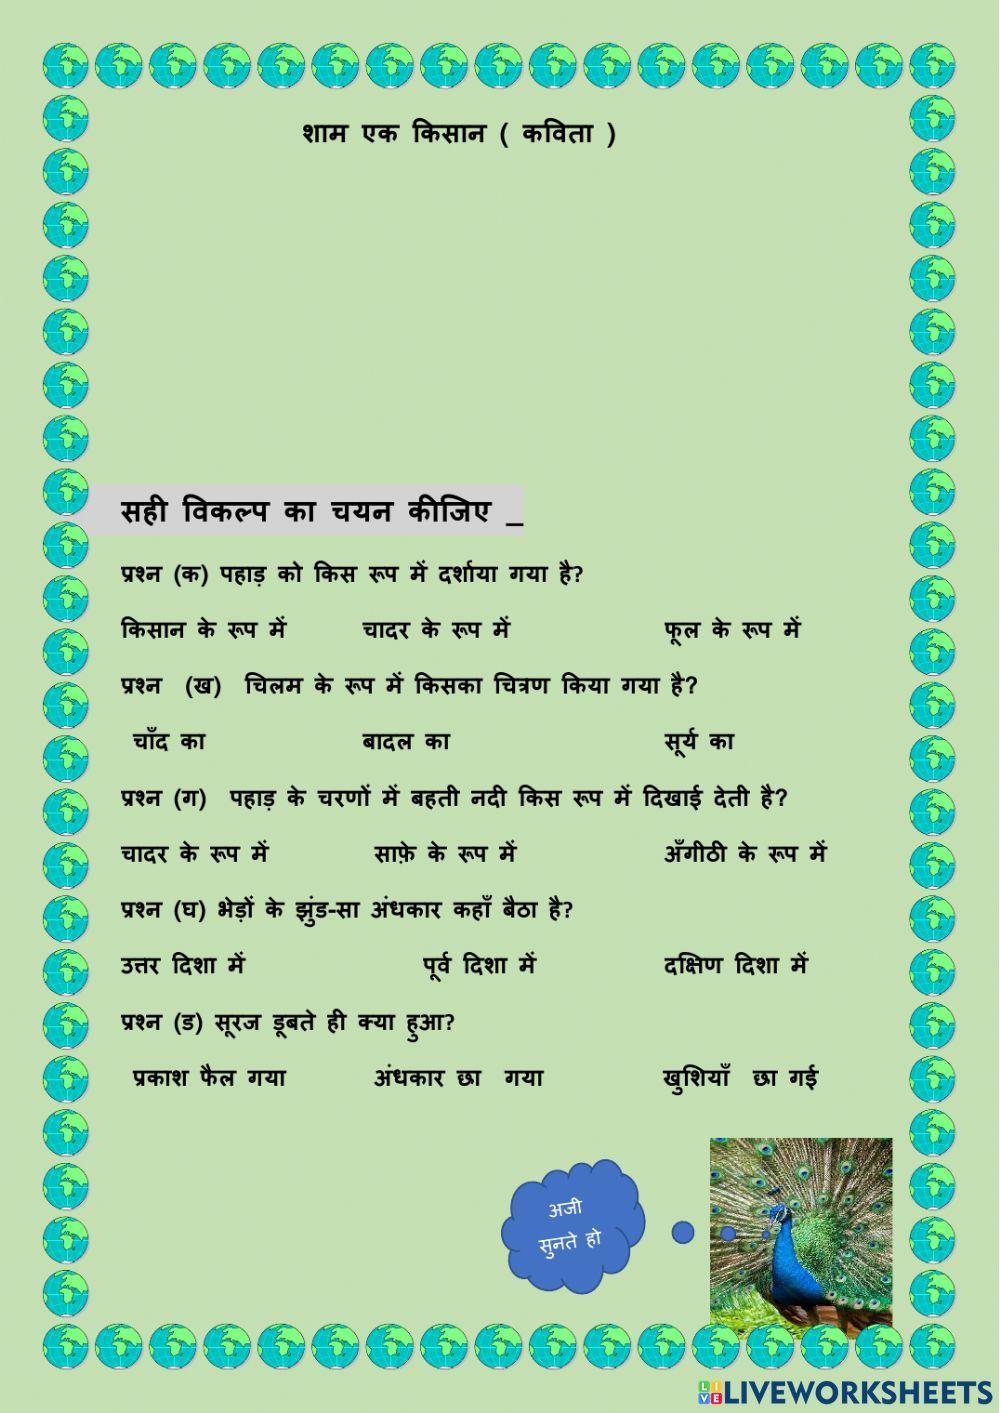 शाम एक किसान ( कविता )
सही विकल्प का चयन कीजिए _
प्रश्न (क) पहाड़ को किस रूप में दर्शाया गया है?
किसान के रूप में चादर के रूप में फूल के रूप में
प्रश्न (ख) चिलम के रूप में किसका चित्रण किया गया है?
चाँद का बादल का सूर्य का
प्रश्न (ग) पहाड़ के चरणों में बहती नदी किस रूप में दिखाई देती है?
चादर के रूप में साफ़े के रूप में अँगीठी के रूप में
प्रश्न (घ) भेड़ों के झुंड-सा अंधकार कहाँ बैठा है?
उत्तर दिशा में पूर्व दिशा में दक्षिण दिशा में
प्रश्न (ड) सूरज डूबते ही क्या हुआ?
प्रकाश फैल गया अंधकार छा गया खुशियाँ छा गई
अजी
सुनते हो
LIVEWORKSHEETS